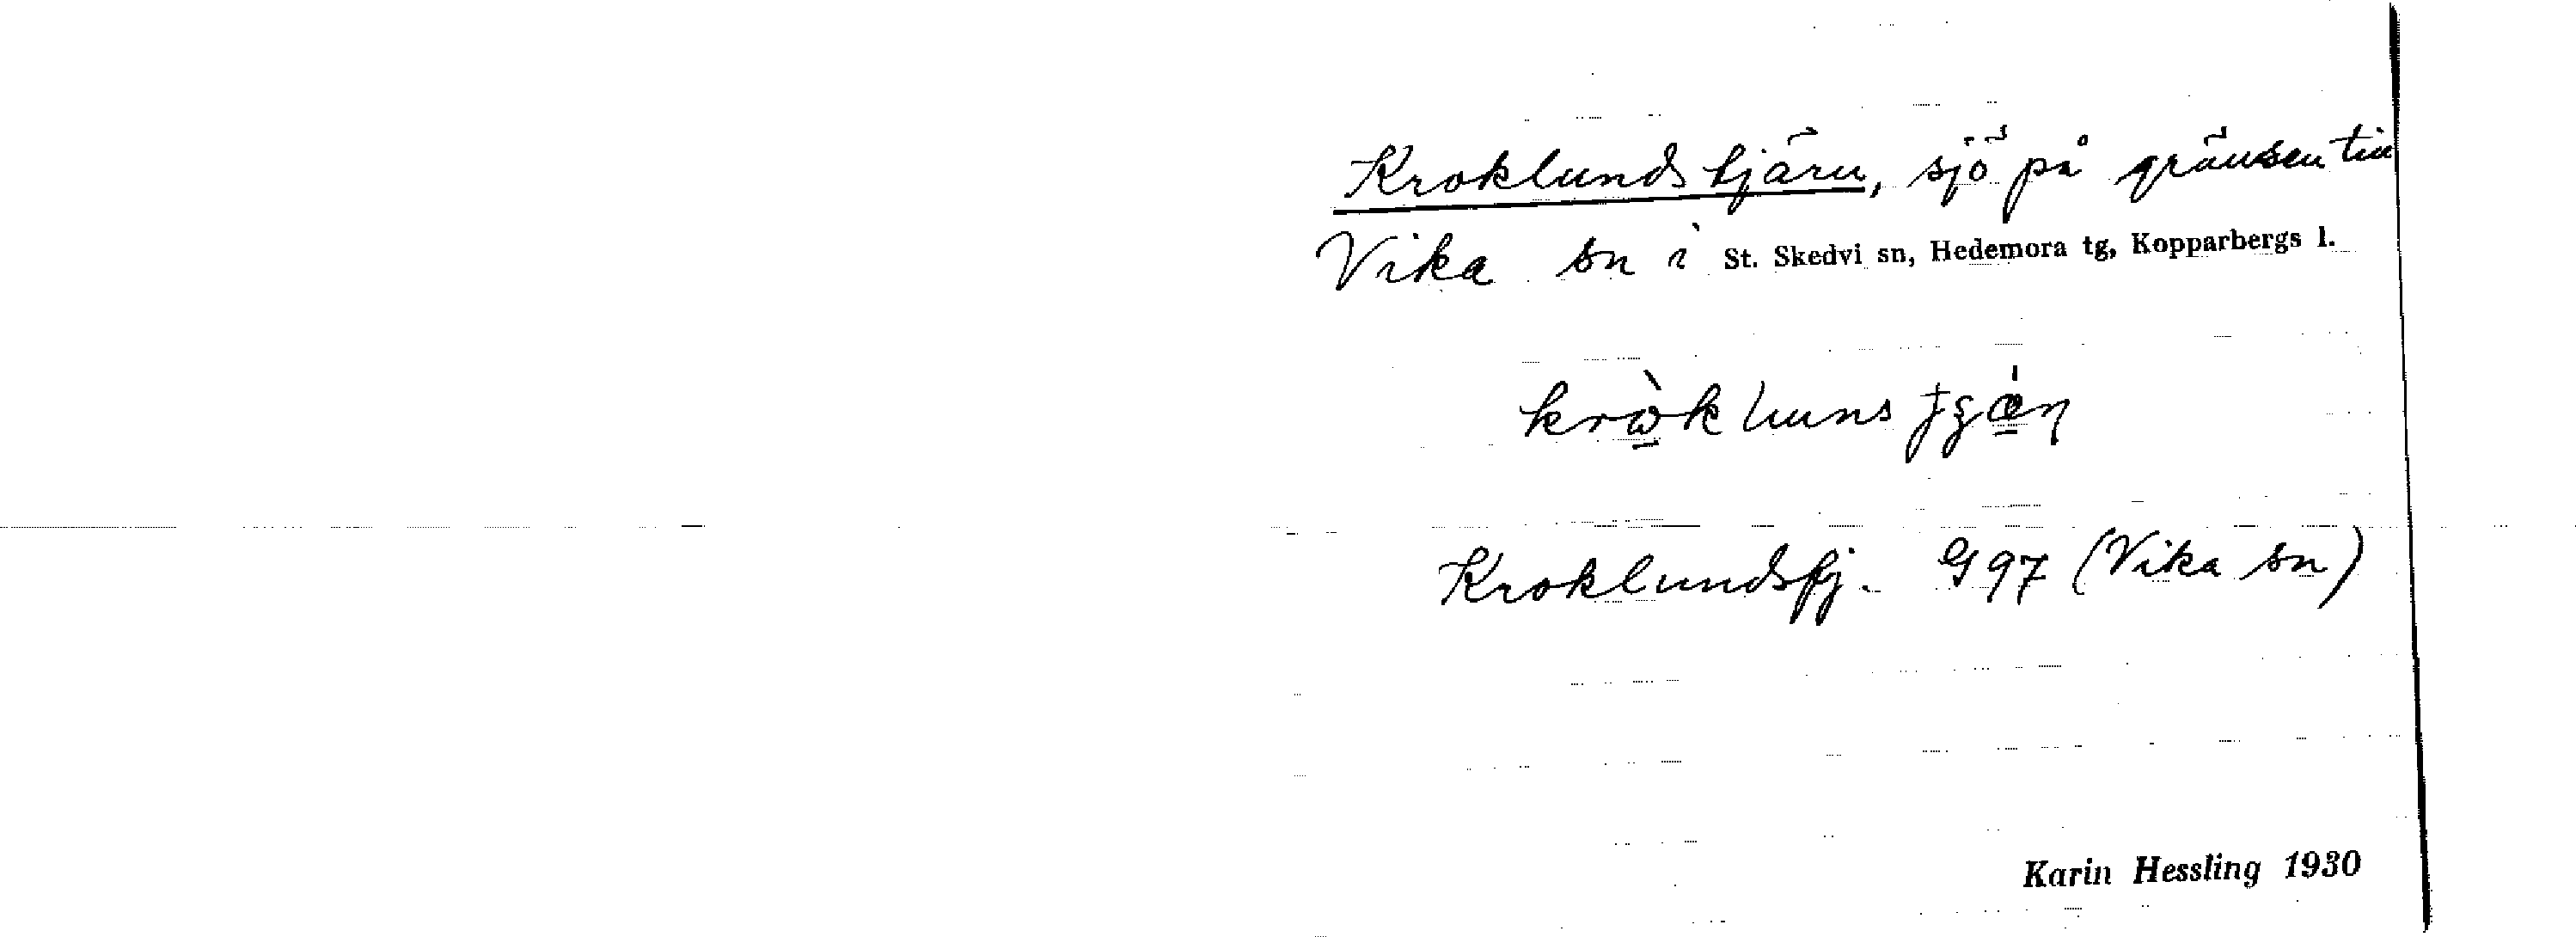 Kroklundstjärn, sjö på gränsen till
Vika sn i St. Skedvi sn, Hedemora tg, Kopparbergs l.
Kroklundstj. G 97 (Vika sn)
Karin Hessling 1930